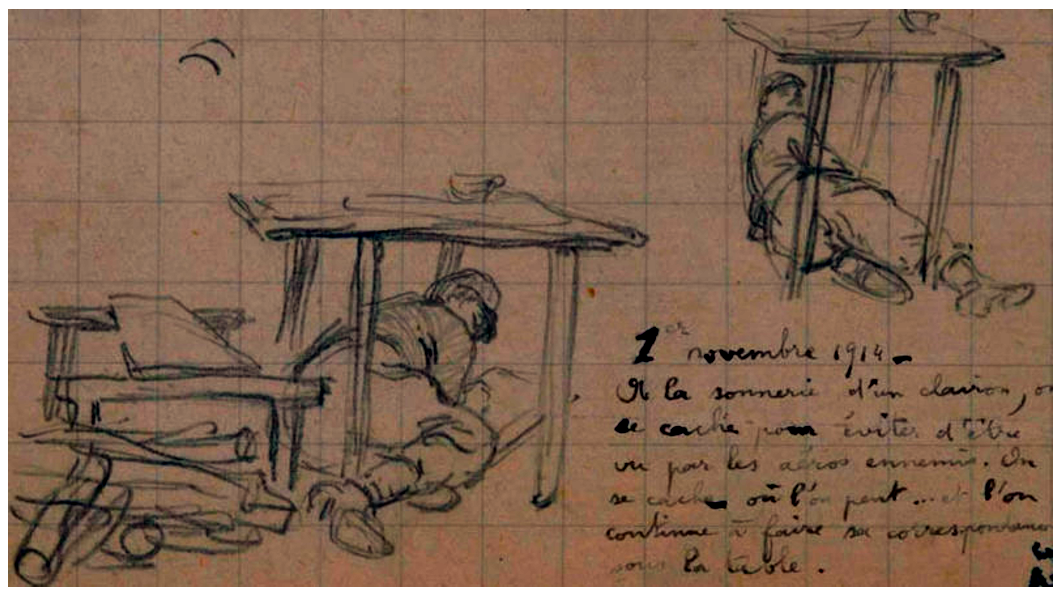 1er novembre 1914 -
A la sonnerie d'un clairon, on
se cache pour éviter d'être
vu par les aéros ennemis. On
se cache où l'on peut... et l'on
continue à faire sa correspondance
sous la table.